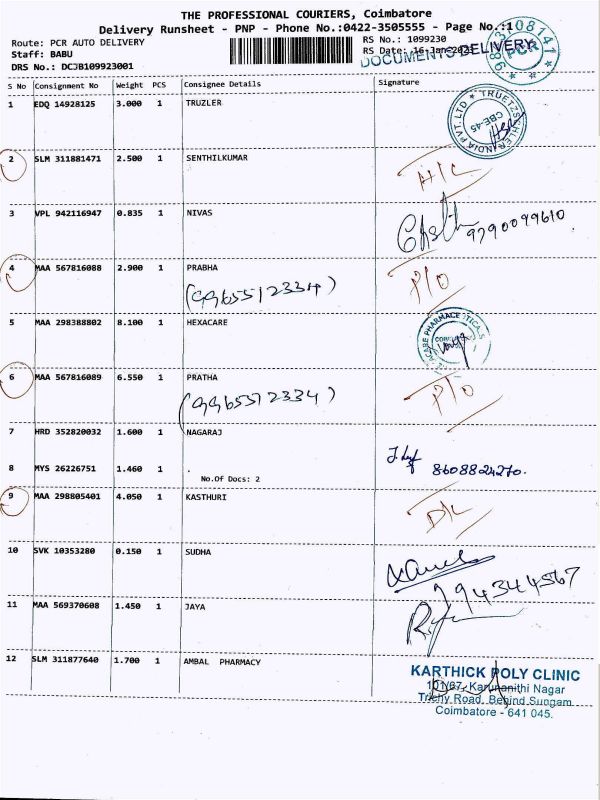 THE PROFESSIONAL COURIERS, Coimbatore
Delivery Runsheet - PNP - Phone No.:0422-3505555 - Page No.:1
Route: PCR AUTO DELIVERY
RS No.: 1099230
Staff: BABU
RS Date: 16-Jan-2021
DOCUMENTS DELIVERY
PCR
DRS No.: DCJB109923001
S No Consignment No Weight PCS Consignee Details Signature
1 EDQ 14928125 3.000 1 TRUZLER
TRUETZSCHLER INDIA PVT. LTD
CBE-45
2 SLM 311881471 2.500 1 SENTHILKUMAR
3 VPL 942116947 0.835 1 NIVAS
9790099610
4 MAA 567816088 2.900 1 PRABHA P/O
(9965512334)
5 MAA 298388802 8.100 1 HEXACARE
6 MAA 567816089 6.550 1 PRATHA P/O
(9965512334)
7 HRD 352820032 1.600 1 NAGARAJ
8 MYS 26226751 1.460 1 . 8608824270.
No.Of Docs: 2
9 MAA 298805401 4.050 1 KASTHURI D/L
10 SVK 10353280 0.150 1 SUDHA
794344567
11 MAA 569370608 1.450 1 JAYA
12 SLM 311877640 1.700 1 AMBAL PHARMACY
KARTHICK POLY CLINIC
101/67, Karunanithi Nagar
Trichy Road, Behind Sungam
Coimbatore - 641 045.